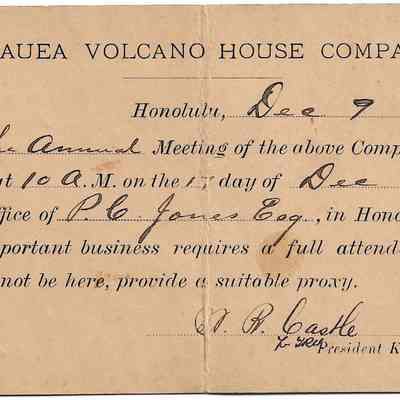 AUEA VOLCANO HOUSE COMPA
Honolulu, Dec 9
he Annual Meeting of the above Comp
at 10 A.M. on the 17 day of Dec
ffice of P. C. Jones Esq, in Hono
portant business requires a full attend
not be here, provide a suitable proxy.
W. R. Castle
President K